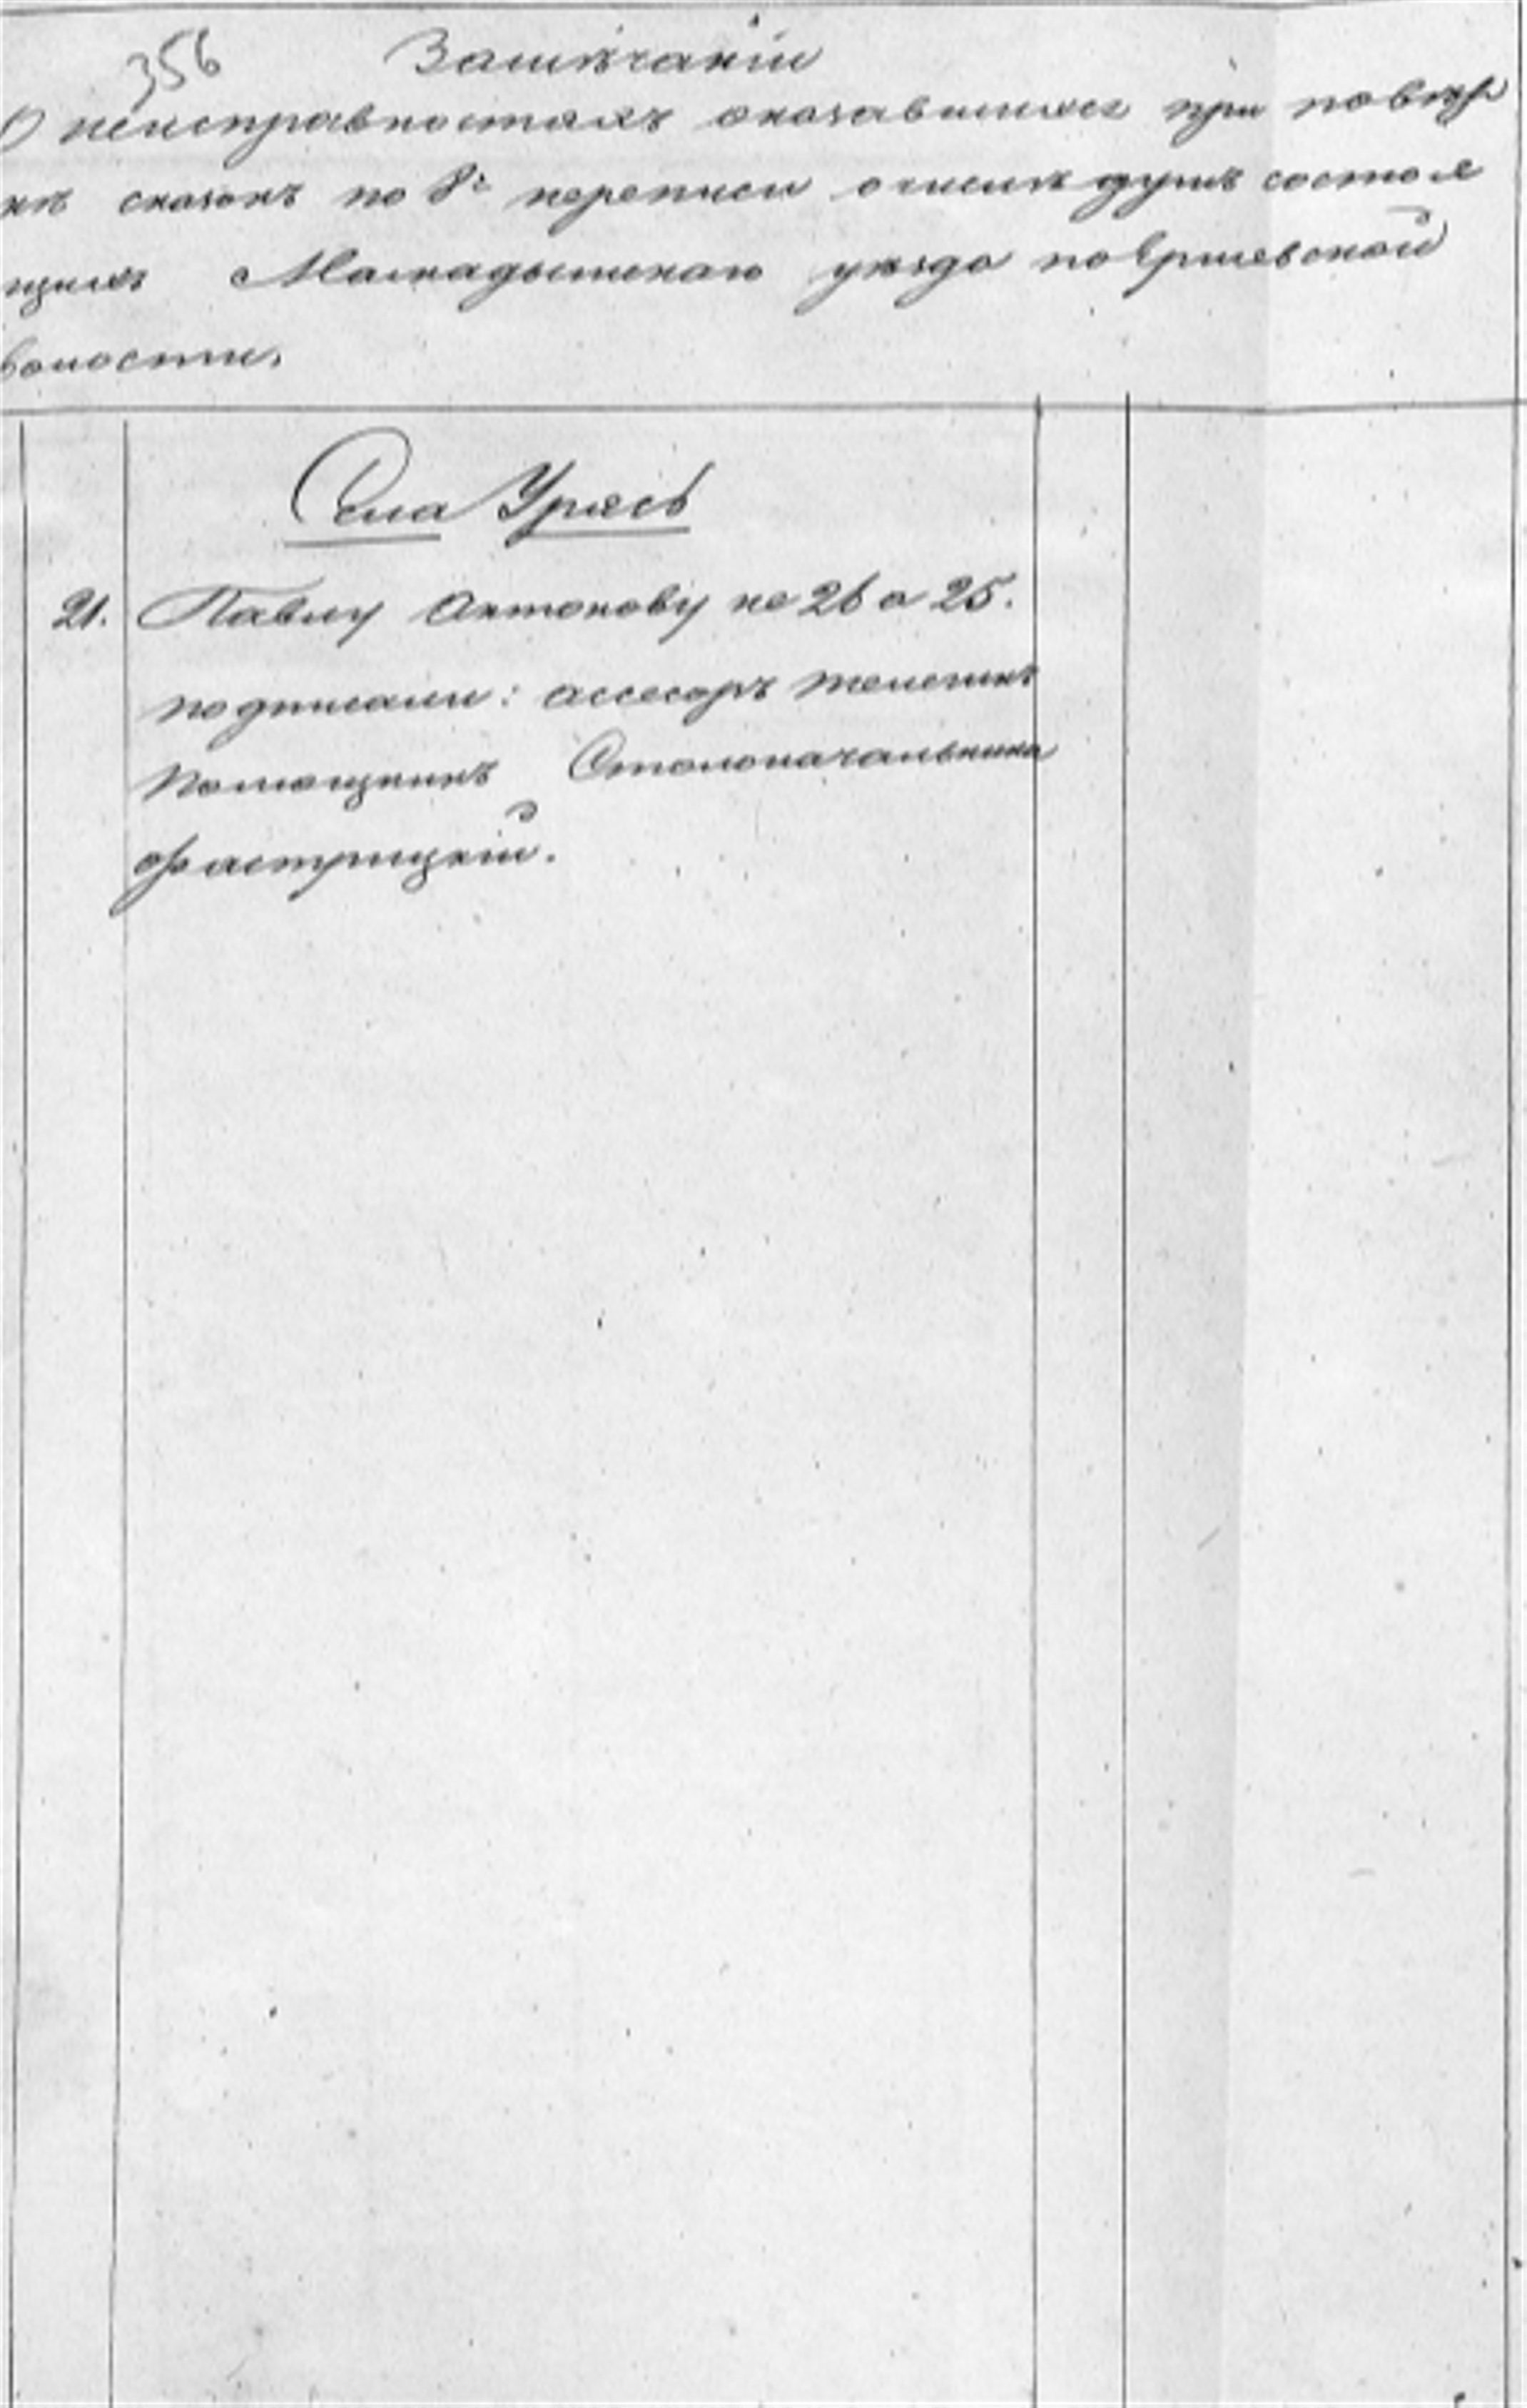 356 Замѣчаніи
О неисправностяхъ оказавшихся при повѣр
кѣ сказокъ по 8й переписи о числѣ душъ состоя
щихъ Мамадышскаго уѣзда по Ершевской
волости.
Села Урясь
21. Павлу Антонову не 26 а 25.
подписали: ассесоръ Телегинъ
Помощникъ Столоначальника
Фастрицкій.